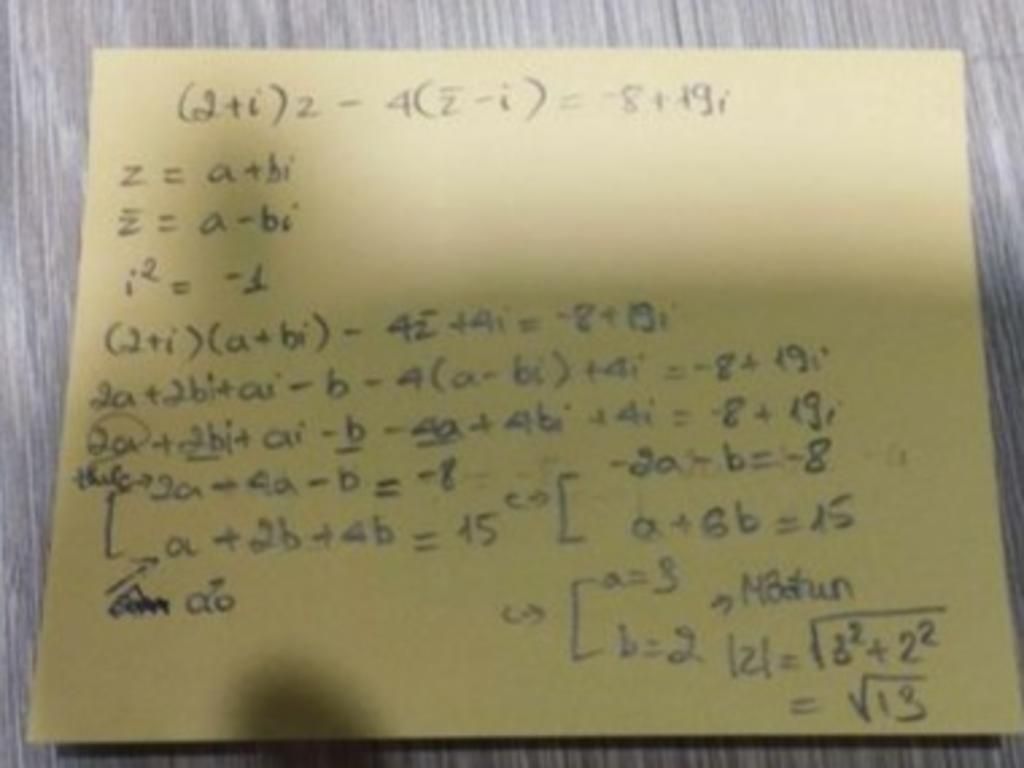 (2+i)z - 4(z̄ - i) = -8 + 19i
z = a+bi
z̄ = a-bi
i² = -1
(2+i)(a+bi) - 4z̄ +4i = -8+19i
2a+2bi+ai - b - 4(a-bi) +4i = -8 + 19i
2a +2bi+ ai - b - 4a + 4bi +4i = -8 + 19i
thực → 2a - 4a - b = -8 ↔ [ -2a - b = -8
→ a + 2b + 4b = 15 a + 6b = 15
ảo ↔ [ a = 3 → Môđun
b = 2 |z| = √3² + 2²
= √13